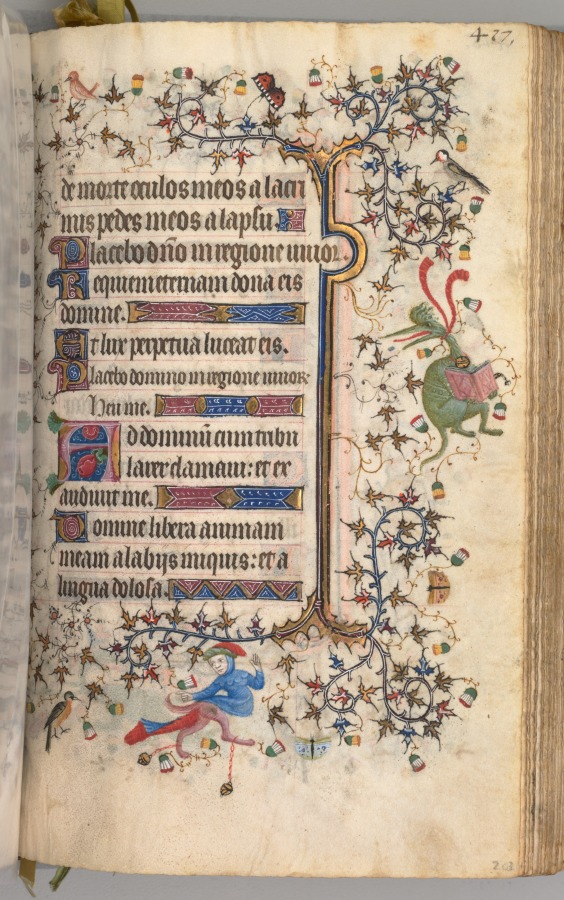 427.
de morte oculos meos a lacri
mis pedes meos a lapsu
Placebo dño in regione viuor.
Requiem eternam dona eis
domine.
Et lux perpetua luceat eis.
Placebo domino in regione viuor
Heu me.
Ad dominũ cum tribu
larer clamaui: et ex
audiuit me.
Domine libera animam
meam a labijs iniquis: et a
lingua dolosa.